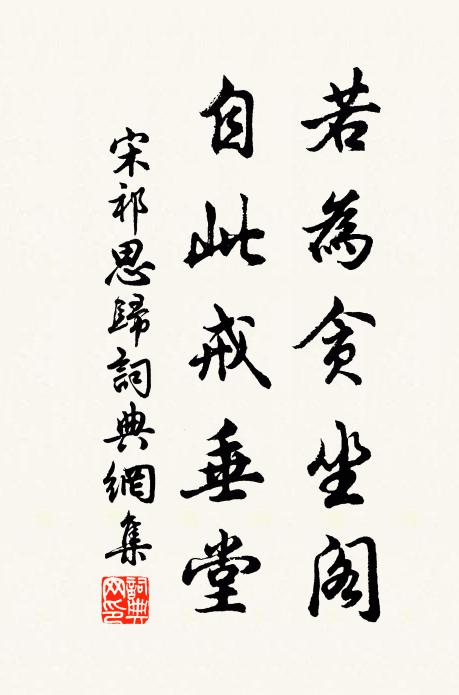 若為貪坐閣
自此戒垂堂
宋祁思歸詞典網集
詞典網印